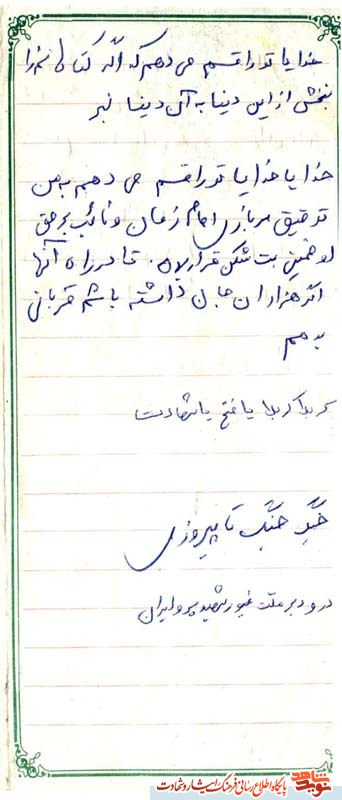 خدایا تو را قسم می دهم که اگه گناهانم را
نبخش از این دنیا به آن دنیا نبر
خدایا خدایا تو را قسم می دهم به من
توفیق سربازی امام زمان و نائب برحق
او خمینی بت شکن قرار بده. تا در راه آنها
اگر هزاران جان داشته باشم قربانی
بدهم
کربلا کربلا یا فتح یا شهادت
جنگ جنگ تا پیروزی
درود بر ملت غیور شهید پرور ایران
نوید شاهد
پایگاه اطلاع رسانی فرهنگ ایثار و شهادت